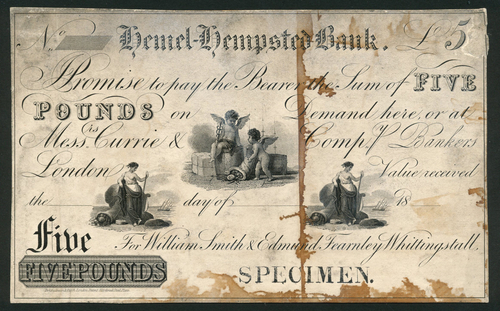 No Hemel-Hempsted Bank. £5
Promise to pay the Bearer the Sum of FIVE
POUNDS on Demand here, or at
Messrs. Currie & Compy. Bankers
London Value received
the day of 18
Five For William Smith & Edmund Fearnley Whittingstall.
FIVE POUNDS SPECIMEN.